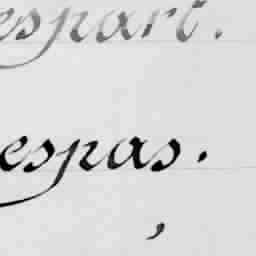 espart.
espas.
,